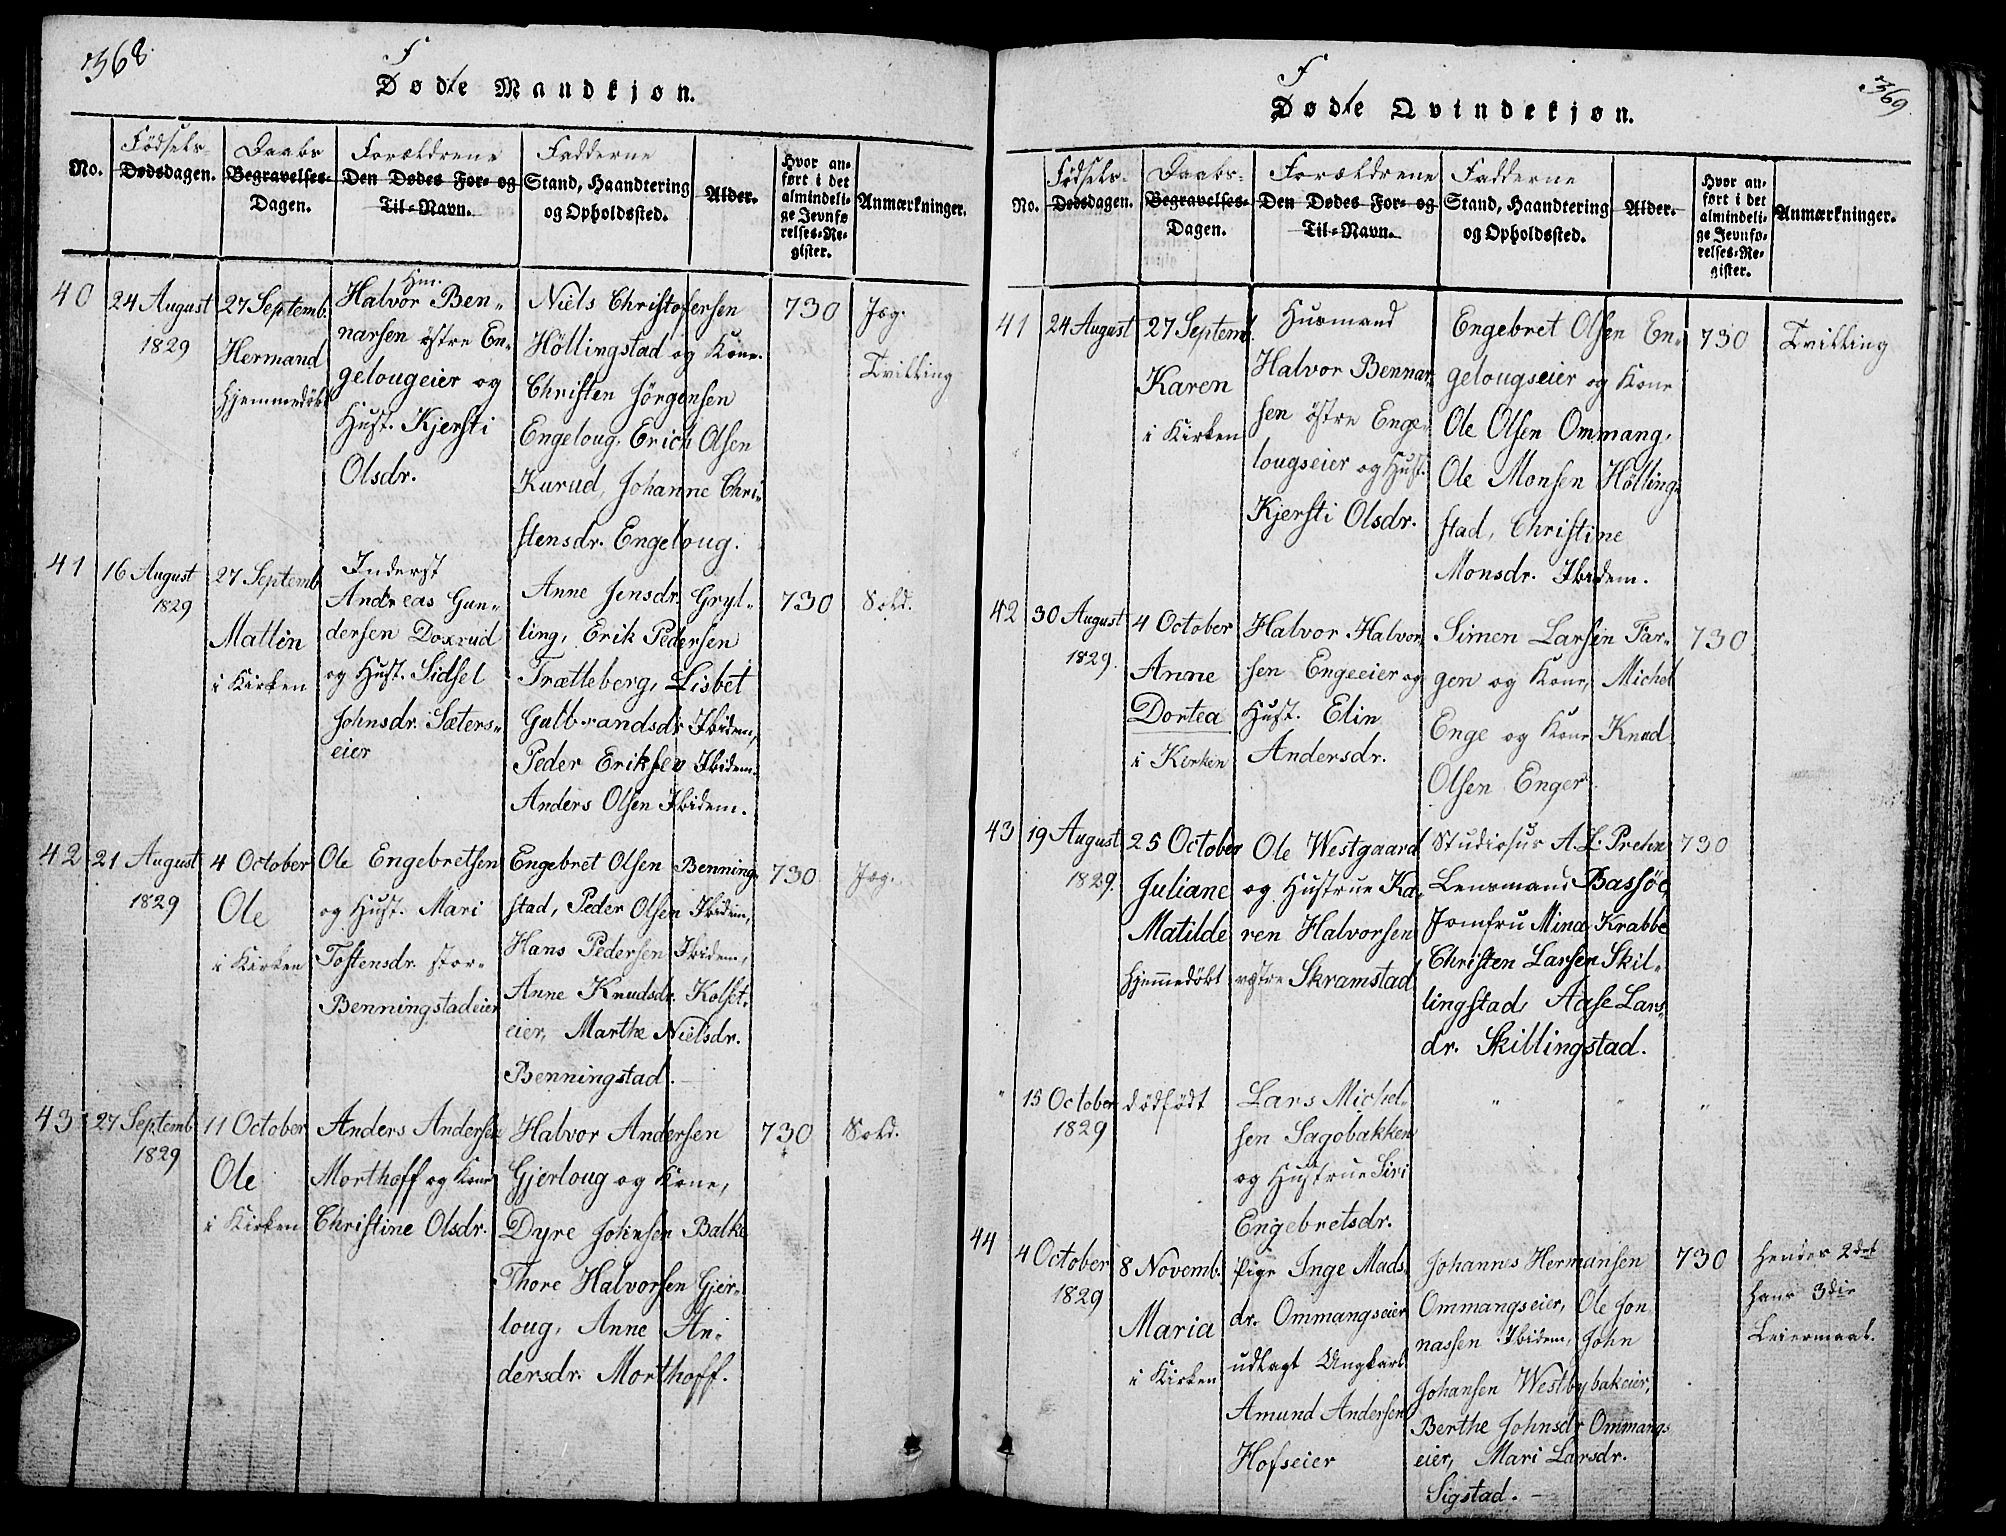 368
F
Dødte Mandkjøn.
Fødsels- Daabs Forældrene Fadderne
No. Dødsdagen. Begravelses- Dagen. Den Dødes For- og Til-Navn. Stand, Haandtering og Opholdssted. Alder. Hvor anført i det almindelige Jevnførelses-Register. Anmærkninger.
40
24 August
1829
27 Septemb.
Hermand
hjemmedøbt
Hm.
Halvor Ben-
narsen östre En-
gelougeier og
Hust. Kjersti
Olsdr.
Niels Christofersen
Höllingstad og Kone.
Christen Jörgensen
Engeloug, Erich Olsen
Kurud, Johanne Chri-
stensdr. Engeloug.
730
Jæg.
Tvilling
41
16 August
1829
27 Septemb
Mattin
i Kirken
Inderst
Andreas Gun-
dersen Doxrud
og Hust. Sidsel
Johnsdr. Sæters-
eier
Anne Jensdr. Gryl-
ling, Erik Pedersen
Trætteberg, Lisbet
Gulbrandsdr Ibidem,
Peder Eriksen Ibidem.
Anders Olsen Ibidem.
730
Sold.
42
21 August
1829
4 October
Ole
i Kirken
Ole Engebretsen
og Hust. Mari
Tostensdr. stor-
Benningstadeier
Engebret Olsen Benning-
stad, Peder Olsen Ibidem,
Hans Pedersen Ibidem,
Anne Knudsdr. Kolset-
eier, Marthe Nielsdr.
Benningstad.
730
Jæg.
43
27 Septemb
1829
11 October
Ole
i Kirken
Anders Andersen
Morthoff og Kone
Christine Olsdr.
Halvor Andersen
Gjerloug og Kone,
Dyre Johnsen Balke
Thore Halvorsen Gjer-
loug, Anne An-
dersdr. Morthoff.
730
Sold.
369
F
Dødte Qvindekjøn.
Fødsels- Daabs- Forældrene Fadderne
No. Dødsdagen. Begravelses- Dagen. Den Dødes For- og Til-Navn. Stand, Haandtering og Opholdssted. Alder. Hvor anført i det almindelige Jevnførelses-Register. Anmærkninger.
41
24 August
27 Septemb.
Karen
i Kirken
Husmand
Halvor Bennar-
sen östre Enge-
lougseier og Hust.
Kjersti Olsdr.
Engebret Olsen En-
gelougseier og Kone
Ole Olsen Ommang,
Ole Monsen Hölling-
stad, Christine
Monsdr. Ibidem.
730
Tvilling
42
30 August
1829.
4 October
Anne
Dortea
i Kirken
Halvor Halvor-
sen Engeeier og
Hust. Elin
Andersdr.
Simen Larsen Far-
gen og Kone, Michel
Enge og Kone Knud
Olsen Enger.
730
43
19 August
1829.
25 October
Juliane
Matilde
hjemedöbt
Ole Westgaard
og Hustrue Ka-
ren Halvorsen
vestre Skramstad
Studiosus A. L. Prehn
Lensmand Bassöe,
Jomfru Mina Krabbe
Christen Larsen Skil-
lingstad, Aase Lars-
dr. Skillingstad.
730
"
15 October
1829
dödfödt
Lars Michel-
sen Sagobakken
og Hustrue Siri
Engebretsdr.
" " "
44
4 October
1829
8 Novemb.
Maria
i Kirken
Pige Inge Mads-
dr. Ommangseier
udlagt Ungkarl
Amund Andersen
Hofseier
Johannes Hermansen
Ommangseier, Ole Jon
nassen Ibidem, John
Johansen Westbybakeier,
Berthe Johnsdr Ommangs
eier, Mari Larsdr.
Sigstad.
730
Hendes 2det
Hans 3die
Leiermaal.